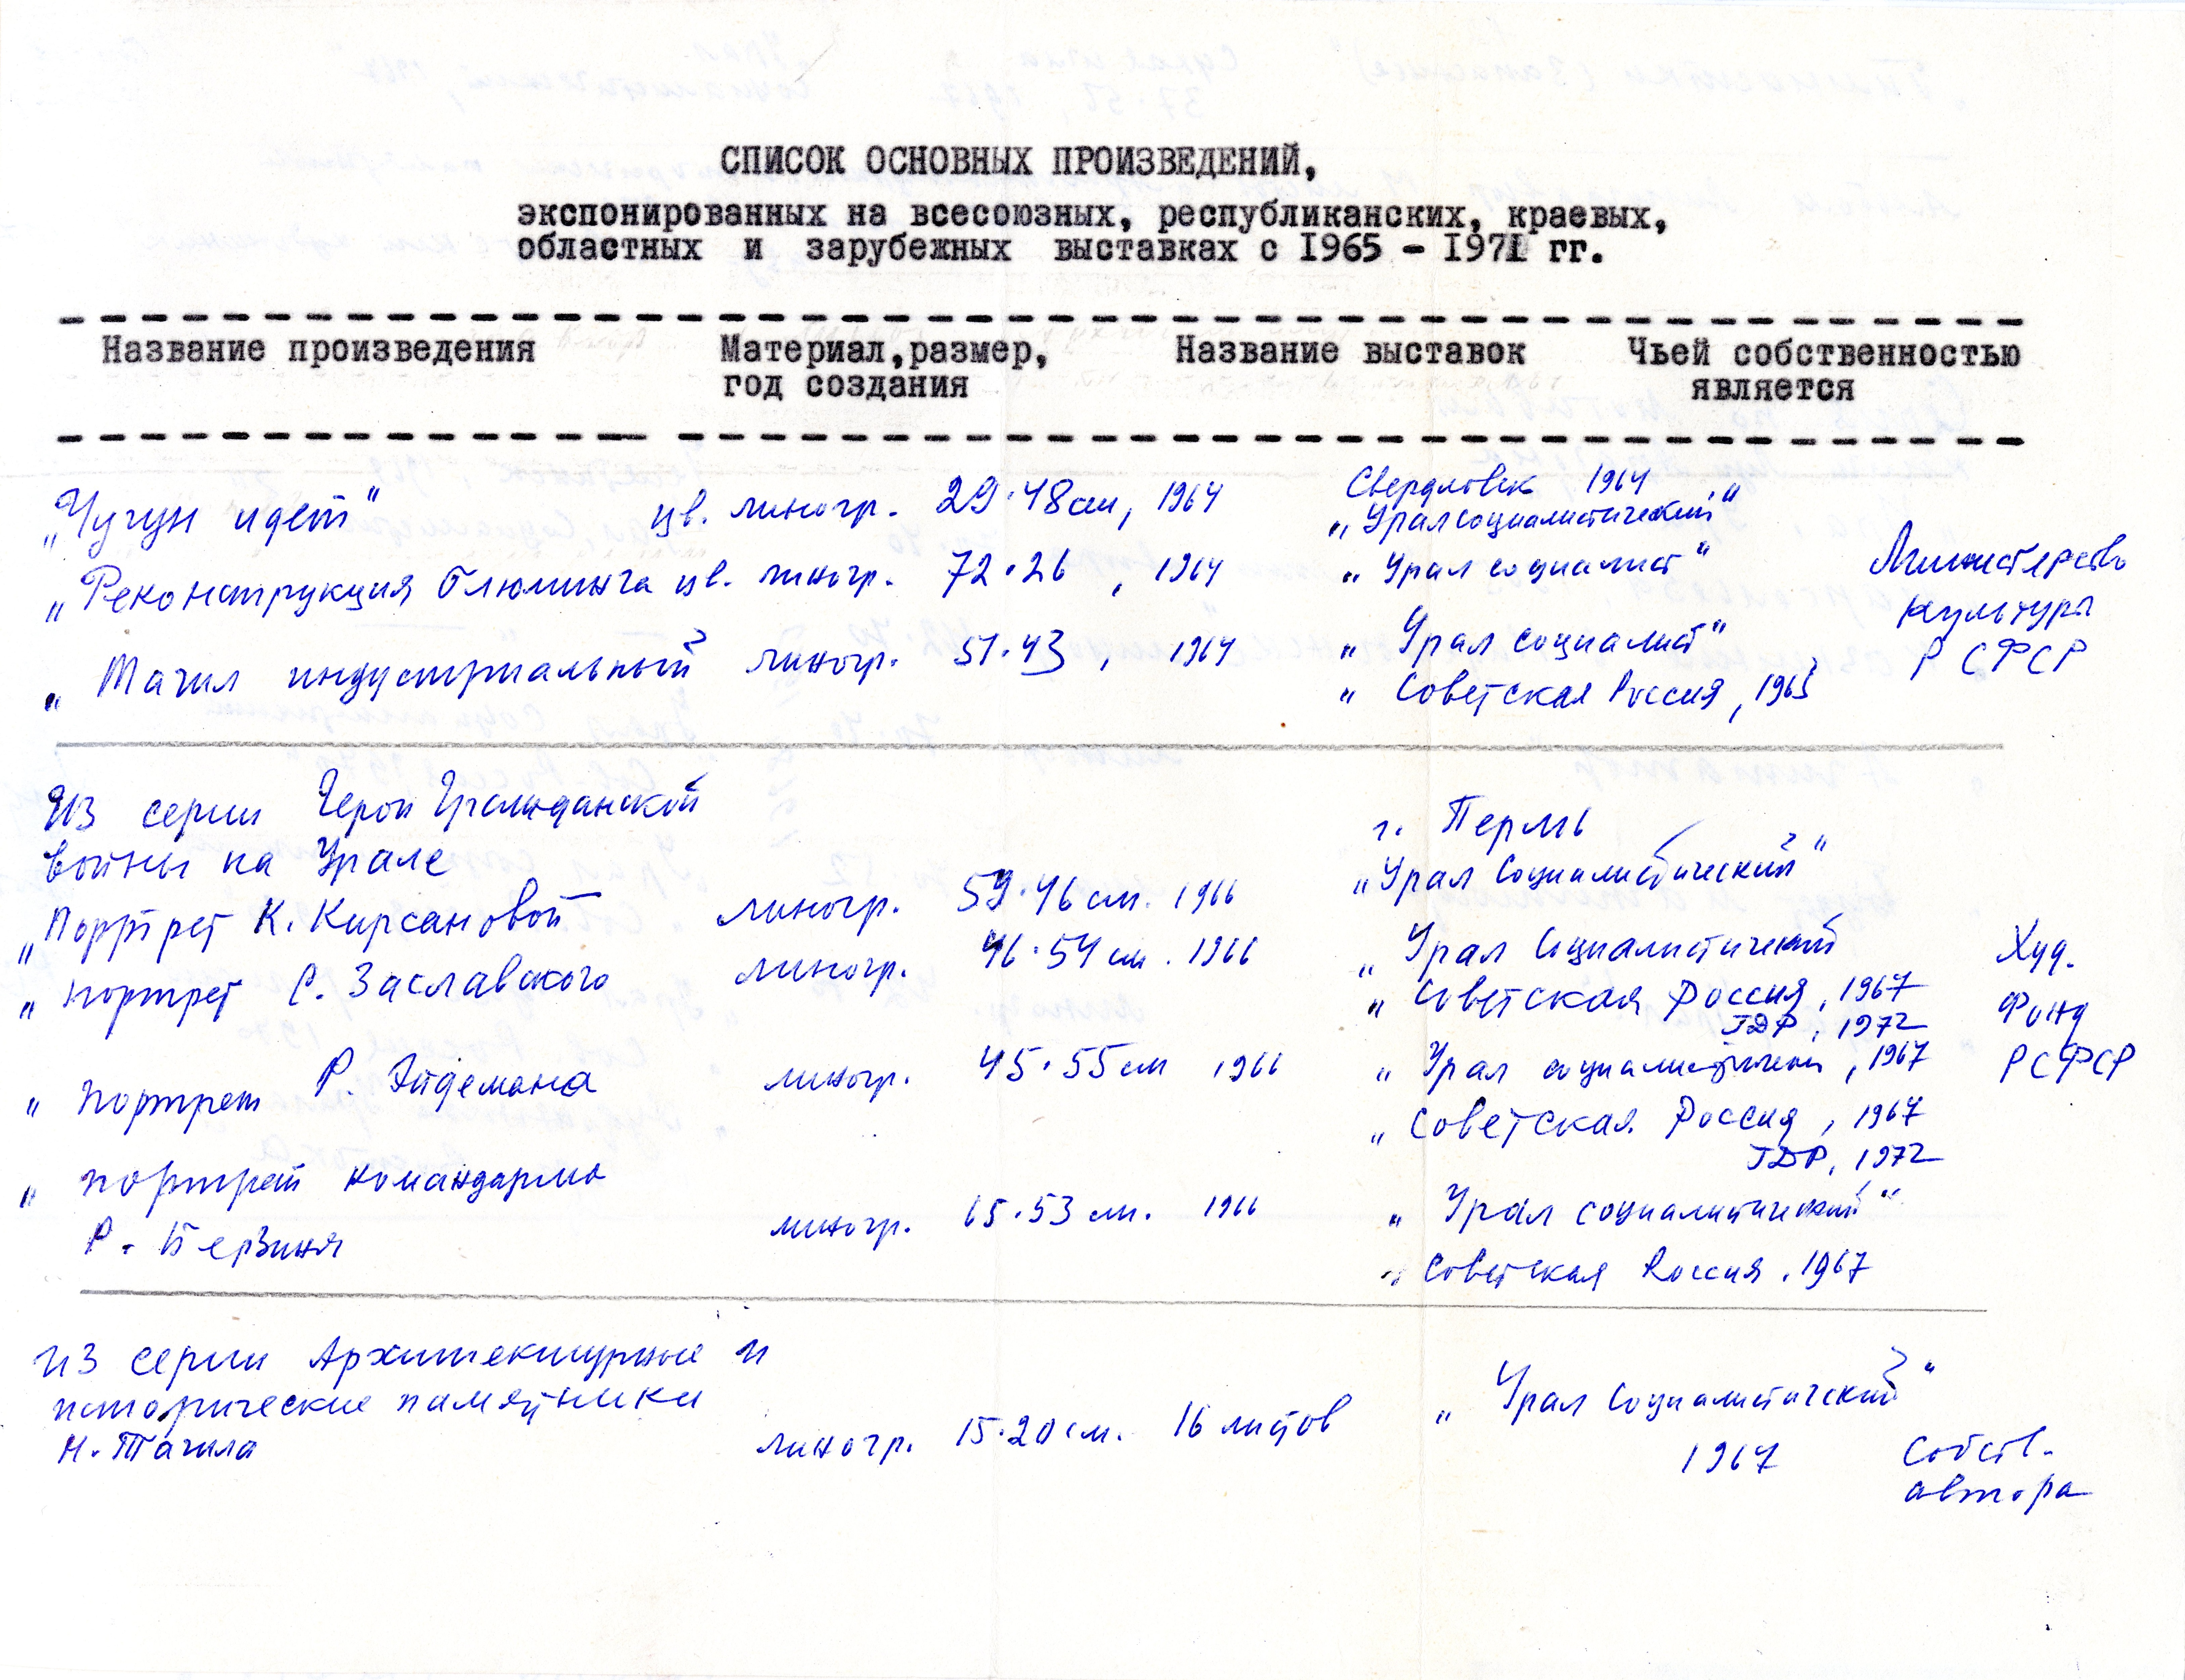 СПИСОК ОСНОВНЫХ ПРОИЗВЕДЕНИЙ,
экспонированных на всесоюзных, республиканских, краевых,
областных и зарубежных выставках с I965 - I97I гг.
Название произведения Материал,размер, Название выставок Чьей собственностью
год создания является
„Чугун идет" цв. линогр. 29·48см, 1964 Свердловск 1964
„Урал социалистический"
„Реконструкция блюминга цв. линогр. 72·26, 1964 „Урал социалист" Министерство
культуры
„Тагил индустриальный линогр. 51·43, 1964 „Урал социалист" РСФСР
„Советская Россия, 1965
Из серии Герои Гражданской
войны на Урале г. Пермь
„Портрет К. Кирсановой линогр. 59·46 см. 1966 „Урал Социалистический"
„портрет С. Заславского линогр. 46·54 см. 1966 „Урал Социалистический Худ.
„Советская Россия, 1967 Фонд
ГДР, 1972
„портрет Р. Эйдемана линогр. 45·55 см 1966 „Урал социалистический, 1967 РСФСР
„Советская Россия, 1967
ГДР, 1972
„портрет командарма
Р. Берзиня линогр. 65·53 см. 1966 „Урал социалистический"
„Советская Россия. 1967
из серии Архитектурные и
исторические памятники
Н. Тагила линогр. 15·20 см. 16 листов „Урал Социалистический"
1967 Собств.
автора